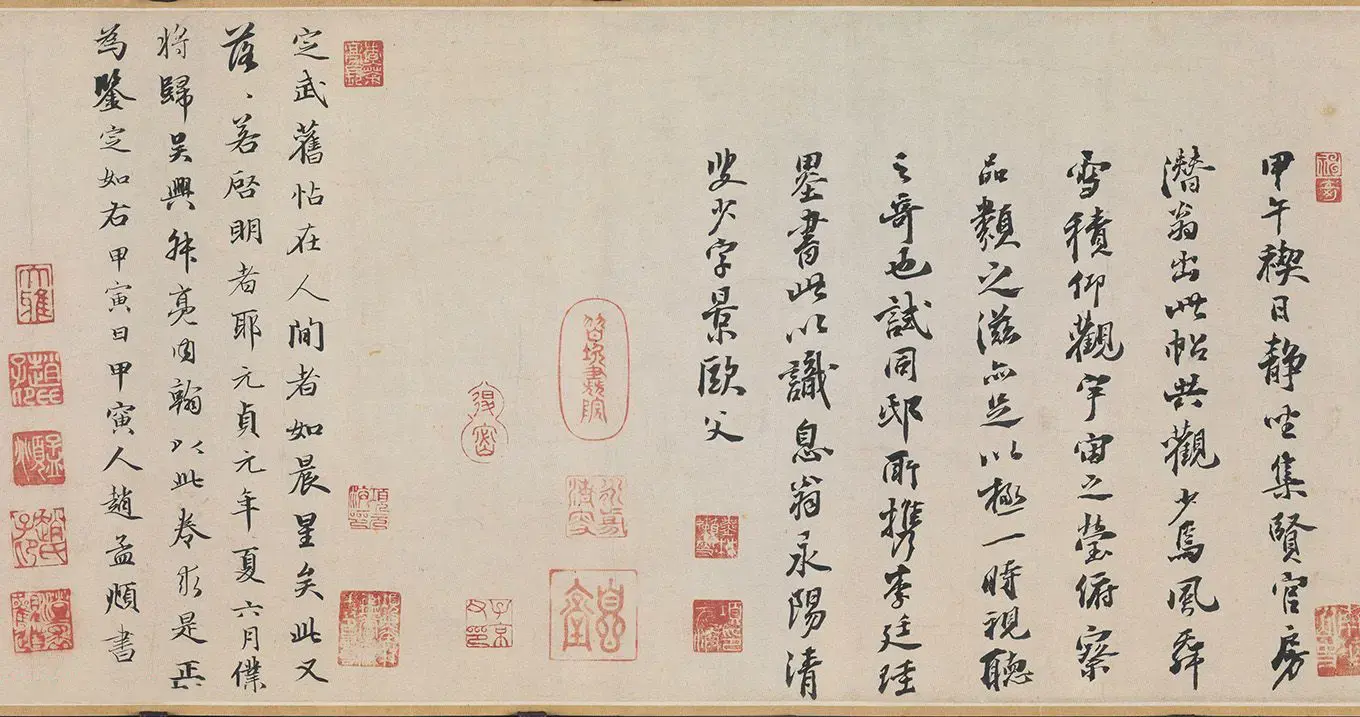 甲午禊日静坐集賢官房
潛翁出此帖共觀少焉風舞
雪積仰觀宇宙之瑩俯察
品類之滋亦足以極一時視聽
之奇也試同邸所攜李廷珪
墨書此以識息翁永陽清
叟少字景歐父
定武舊帖在人間者如晨星矣此又
落〻若啓明者耶元貞元年夏六月僕
將歸吳興昇亮因翰以此卷求是正
為鑒定如右甲寅日甲寅人趙孟頫書
大雅
趙氏子昂
趙氏子昂